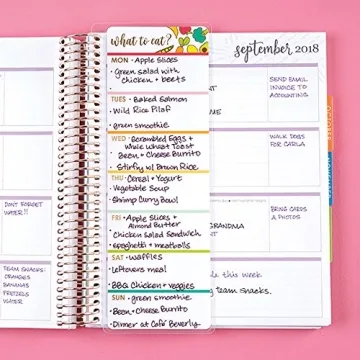 what to eat?
MON • Apple Slices
• Green salad with
chicken + beets
TUES • Baked Salmon
• Wild Rice Pilaf
• green smoothie
WED • Scrambled Eggs +
whole wheat Toast
• Bean + Cheese Burrito
• Stirfry w/ Brown Rice
THU • Cereal + Yogurt
• Vegetable Soup
• Shrimp Curry Bowl
FRI • Apple Slices +
Almond Butter
• Chicken Salad Sandwich
• spaghetti + meatballs
SAT • Waffles
• Leftovers meal
• BBQ Chicken + veggies
SUN • green smoothie
• Bean + Cheese Burrito
• Dinner at Café Beverly
september 2018
SEND EMAIL
INVOICE TO
ACCOUNTING
WALK DOGS
FOR CARLA
BRING CARDS
& PHOTOS
GRANDMA
this week.
team snacks.
DON'T FORGET
WATER!!
TEAM SNACKS:
ORANGES
BANANAS
PRETZELS
WATER